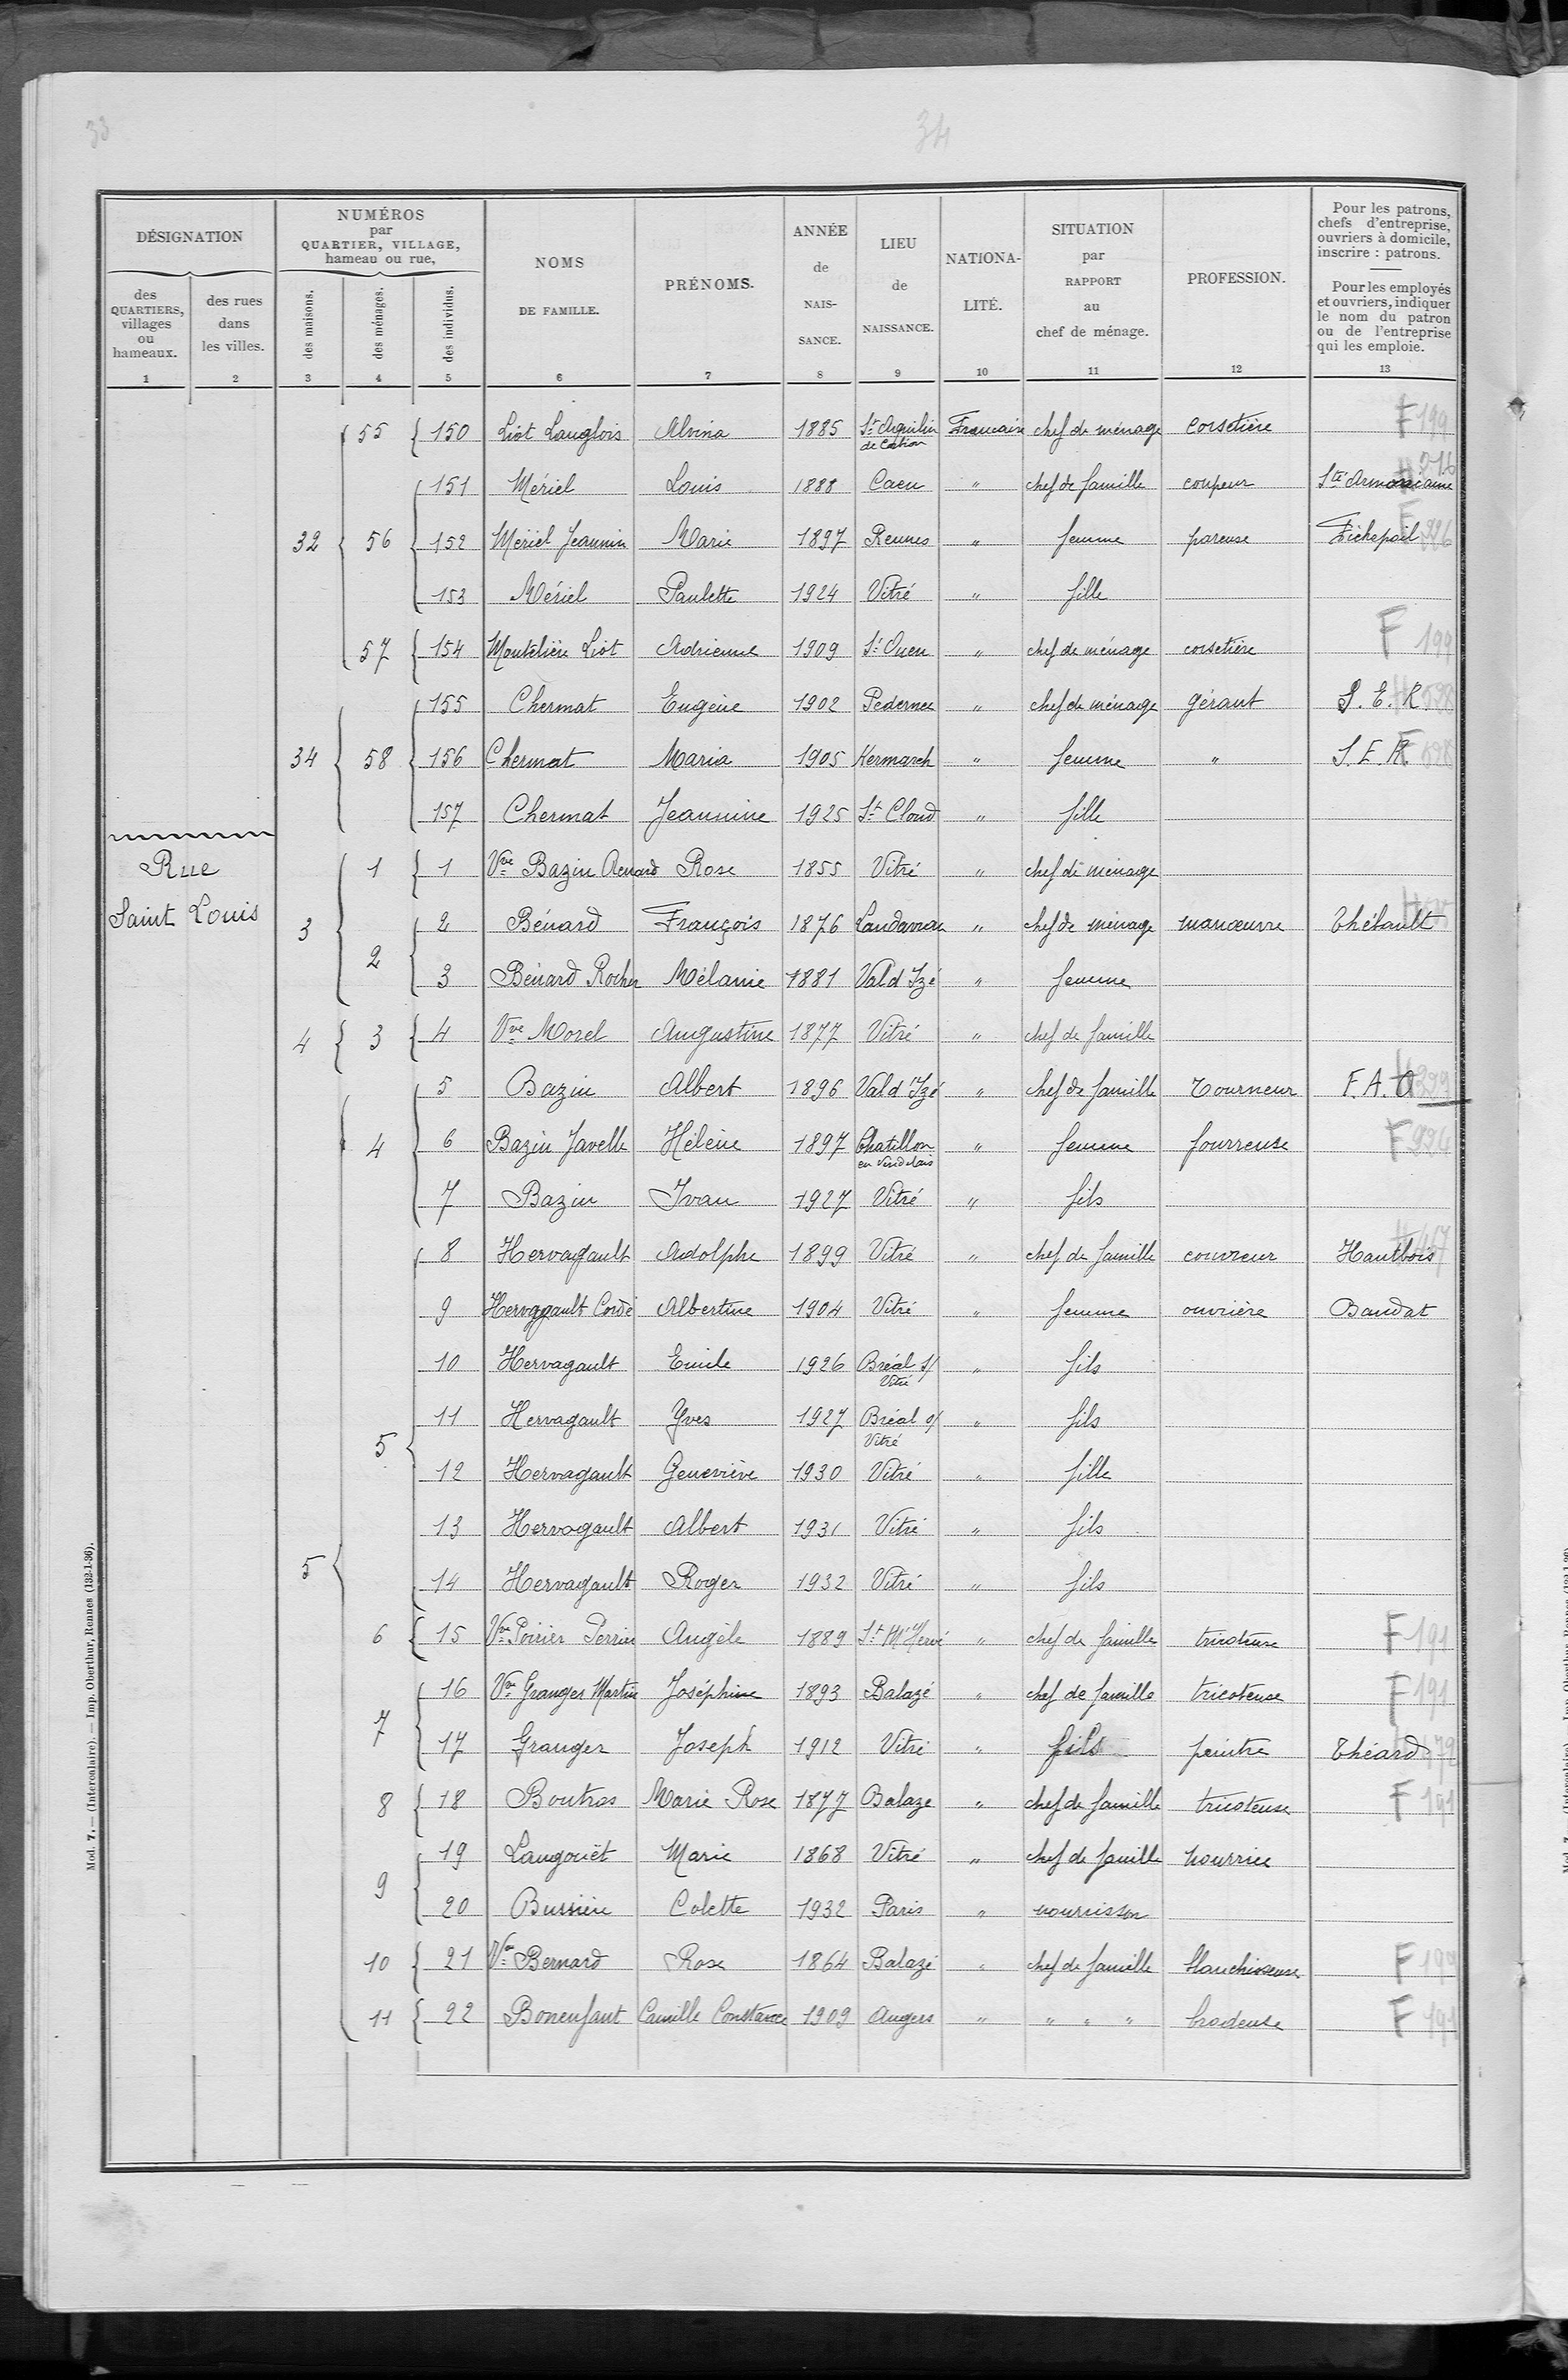 33
34
DÉSIGNATION
NUMÉROS
par
QUARTIER, VILLAGE,
hameau ou rue,
des
QUARTIERS,
villages
ou
hameaux.
des rues
dans
les villes.
des maisons.
des ménages.
des individus.
NOMS
DE FAMILLE.
PRÉNOMS.
ANNÉE
de
NAIS-
SANCE.
LIEU
de
NAISSANCE.
NATIONA-
LITÉ.
SITUATION
par
RAPPORT
au
chef de ménage.
PROFESSION.
Pour les patrons,
chefs d'entreprise,
ouvriers à domicile,
inscrire : patrons.
Pour les employés
et ouvriers, indiquer
le nom du patron
ou de l'entreprise
qui les emploie.
1 2 3 4 5 6 7 8 9 10 11 12 13
55 150 Liot Langlois Alvina 1885 St Aquilin Francaise chef de ménage corsetière F 199
151 Mériel Louis 1888 Caen " chef de famille coupeur Sté Armoricaine 216
32 56 152 Mériel Jeannin Marie 1897 Rennes " femme pareuse Fichepoil
153 Mériel Paulette 1924 Vitré " fille
57 154 Montelière Liot Adrienne 1909 St Ouen " chef de ménage corsetière F 199
155 Chermat Eugène 1902 Pedernec " chef de ménage gérant S. E. R
34 58 156 Chermat Maria 1905 Kermarch " femme " S. E. R
157 Chermat Jeannine 1925 St Cloud " fille
Rue
Saint Louis
1 1 Vve Bazin Renard Rose 1855 Vitré " chef de ménage
3 2 2 Bénard François 1876 Landavran " chef de ménage manœuvre Thébault
3 Bénard Rocher Mélanie 1881 Val d'Izé " femme
4 3 4 Vve Morel Augustine 1877 Vitré " chef de famille
5 Bazin Albert 1896 Val d'Izé " chef de famille Tourneur F. A. O
4 6 Bazin Javelle Hélène 1897 Chatillon " femme fourreuse F
en Vendelais
7 Bazin Ivan 1927 Vitré " fils
8 Hervagault Adolphe 1899 Vitré " chef de famille couvreur Hautbois
9 Hervagault Cordé Albertine 1904 Vitré " femme ouvrière Baudat
10 Hervagault Emile 1926 Bréal s/ " fils
Vitré
5 11 Hervagault Yves 1927 Bréal s/ " fils
Vitré
12 Hervagault Geneviève 1930 Vitré " fille
13 Hervagault Albert 1931 Vitré " fils
5 14 Hervagault Roger 1932 Vitré " fils
6 15 Vve Poirier Perrier Angèle 1889 St M'Hervé " chef de famille tricoteuse F 191
7 16 Vve Granger Martin Joséphine 1893 Balazé " chef de famille tricoteuse F 191
17 Granger Joseph 1912 Vitré " fils peintre Théard
8 18 Boutros Marie Rose 1877 Balazé " chef de famille tricoteuse F 191
9 19 Langouët Marie 1868 Vitré " chef de famille nourrice
20 Bussière Colette 1932 Paris " nourrisson
10 21 Vve Bernard Rose 1864 Balazé " chef de famille blanchisseuse F 199
11 22 Bonenfant Camille Constance 1909 Angers " " " " brodeuse F 191
Mod. 7. — (Intercalaire). — Imp. Oberthur, Rennes (132-1-36).